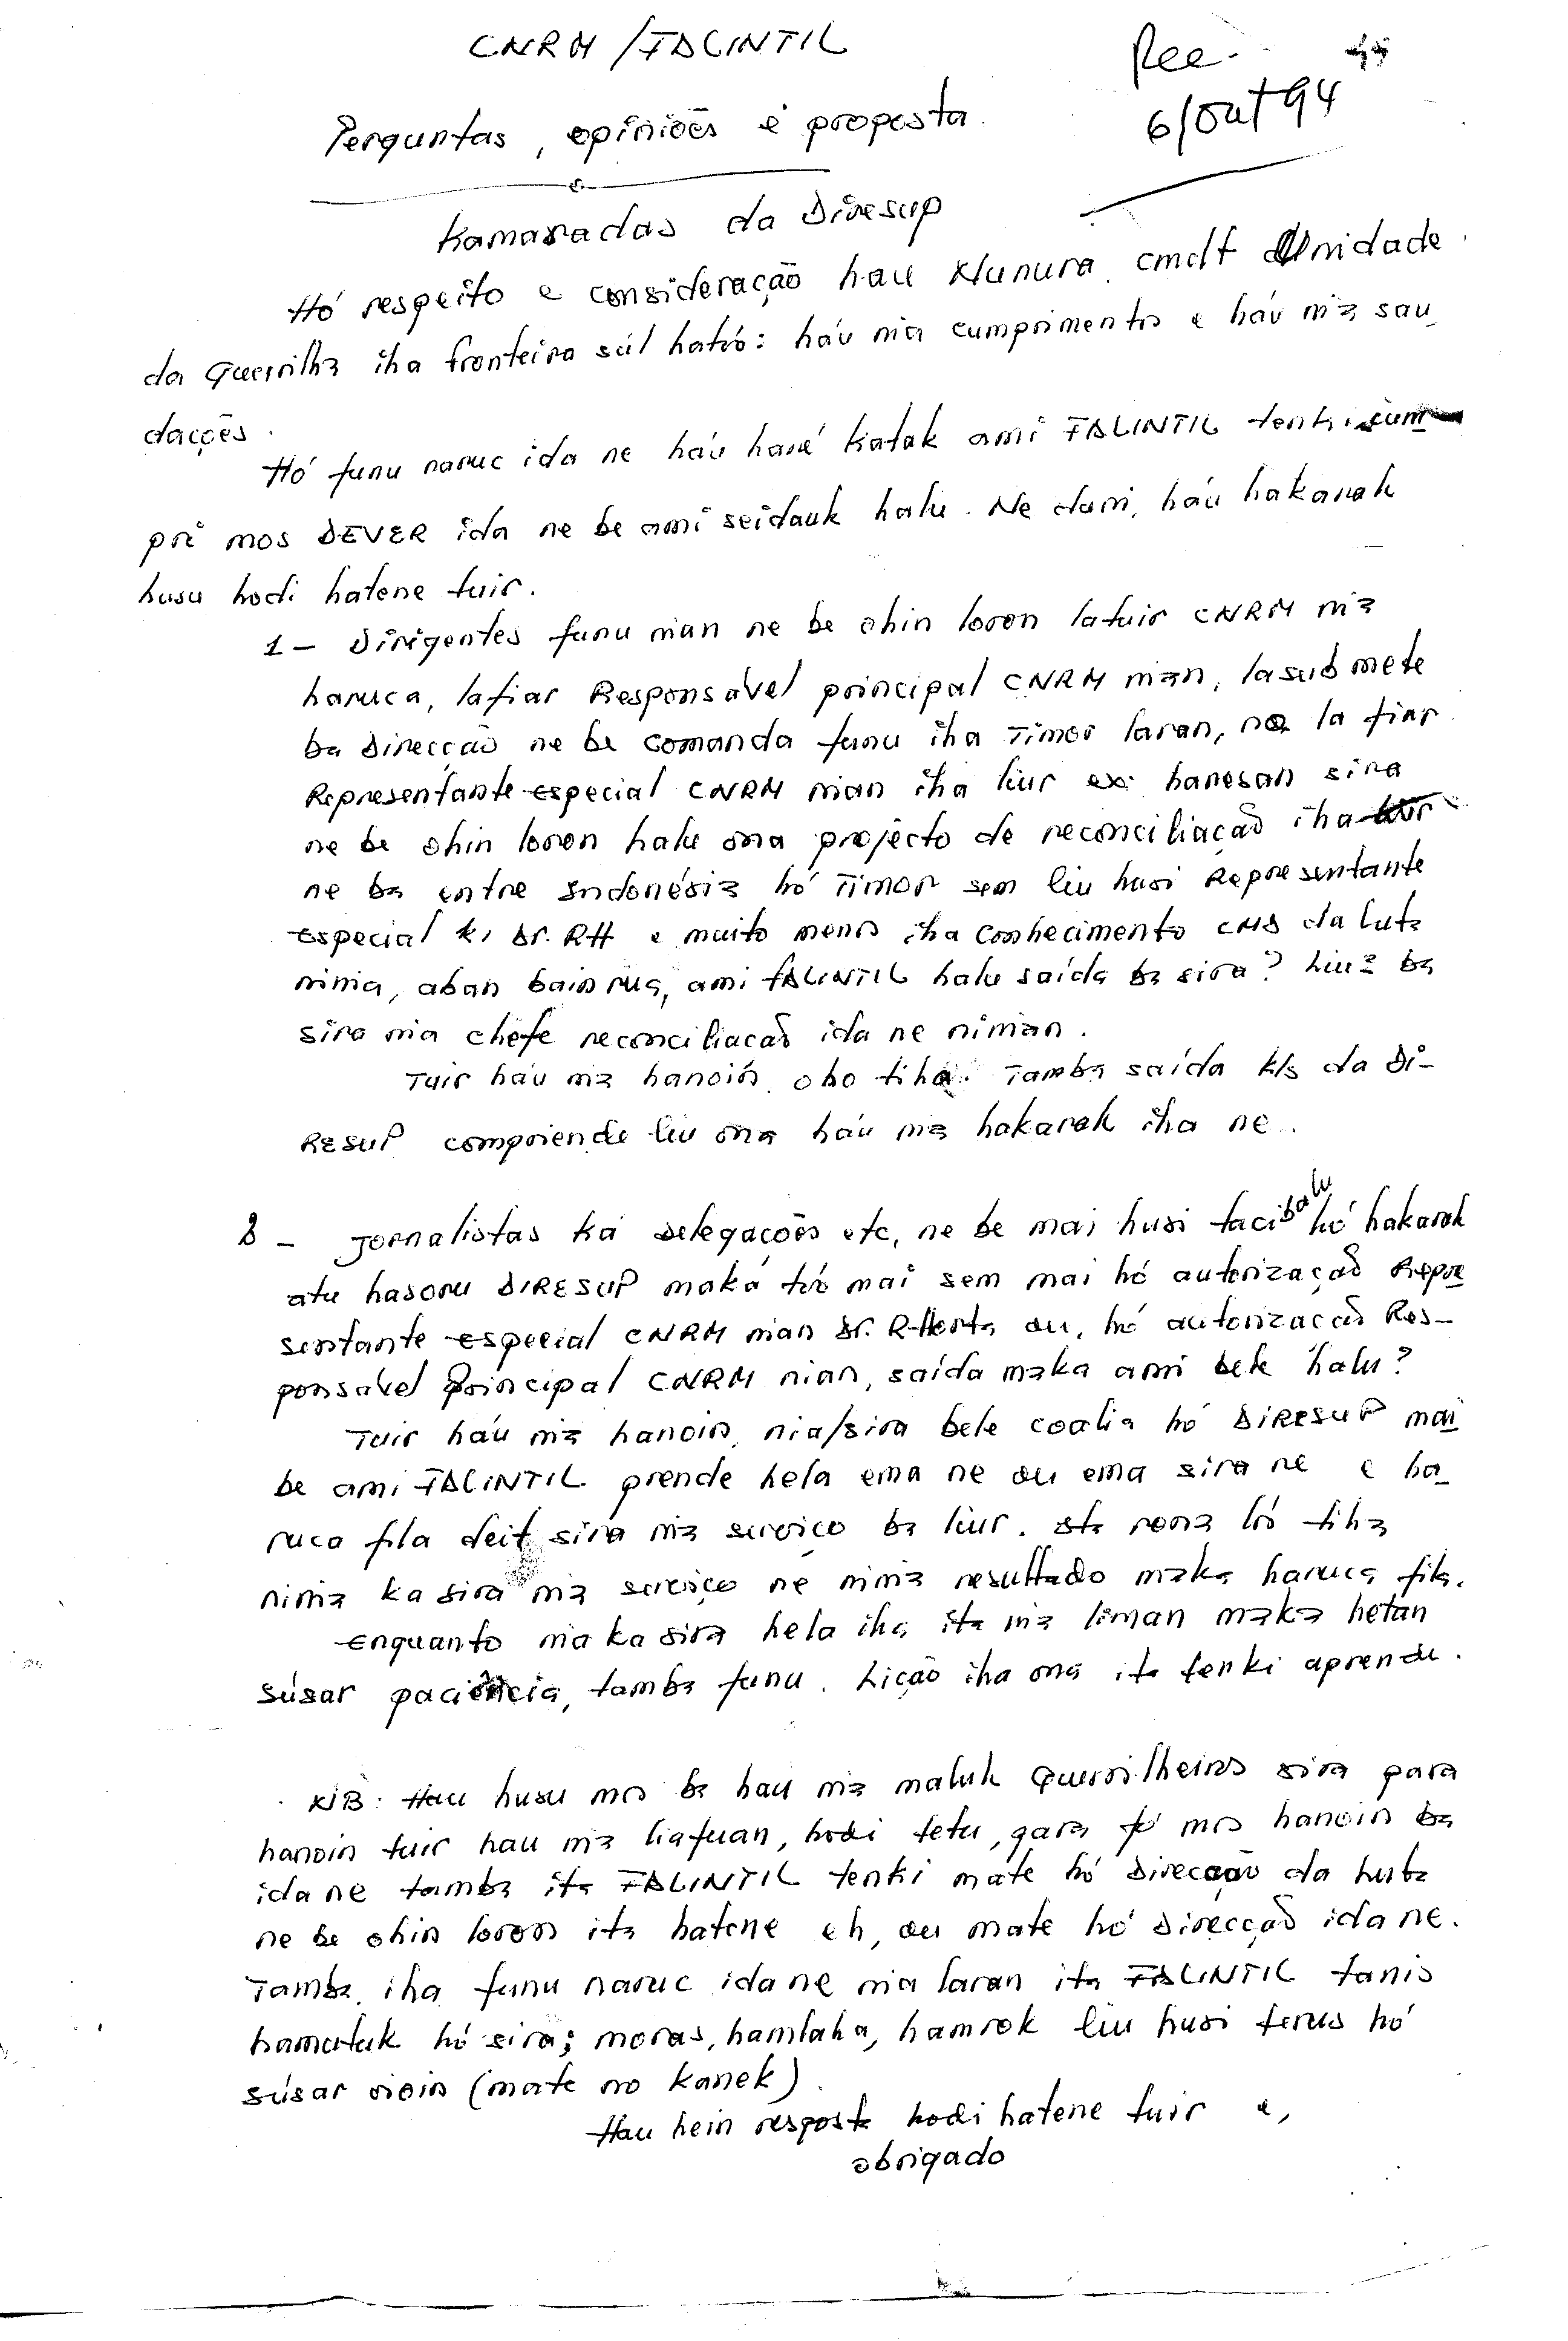 CNRM/FALINTIL
Rec.
6/Out 94
Perguntas, opiniões e proposta
Kamaradas da Diresup
Hó respeito e consideração hau Nunura cmdt Unidade
da Guerrilha iha fronteira súl ható: háu nia cumprimentos e háu nia sau_
dações.
Hó funu naruc ida ne háu haré katak ami FALINTIL tenki cum
pri mos DEVER ida ne be ami seidauk halu. Ne duni, háu hakarak
husu hodi hatene tuir.
1 - Dirigentes funu nian ne be ohin loron latuir CNRM nia
haruca, lafiar Responsável principal CNRM nian, lasub mete
ba Direcção ne be comanda funu iha Timor laran, no la fiar
Representante especial CNRM nian iha liur ex: hanesan sira
ne be ohin loron halu ona projecto de reconciliação iha
ne ba entre Indonésia hó Timor sem liu husi Representante
Especial k, Dr. RH e muito menos iha conhecimento CMS da luta
ninia, aban bain rua, ami FALINTIL halu saída ba sira? Liu? ba
sira nia chefe reconciliacaõ ida ne nimian.
Tuir háu nia hanoin, oho tiha. Tamba saída k/s da Di-
RESUP compriende liu ona háu nia hakarak iha ne..
2 - Jornalistas ka Delegações etc, ne be mai husi taci balu hó hakarak
atu hasoru DIRESUP maká tó mai sem mai hó autorização Repre
sentante especial CNRM nian Dr. R-Horta ou, hó autorizacaõ Res-
ponsável Principal CNRM nian, saída maka ami bele halu?
Tuir háu nia hanoin, nia/sira bele coalia hó DIRESUP mai
be ami FALINTIL prende hela ema ne ou ema sira ne e ha_
ruca fila deit sira nia serviço ba liur. Ita rona ló tiha
ninia ka sira nia serviço ne ninia resultado maka haruca fila.
Enquanto nia ka sira hela iha ita nia liman maka hetan
súsar paciência, tamba funu. Lição iha ona ita tenki aprende.
NB: Hau husu mos ba hau nia maluk Guerrilheiros sira para
hanoin tuir hau nia liafuan, hodi tetu, para fó mos hanoin ba
ida ne tamba ita FALINTIL tenki mate hó Direcção da luta
ne be ohin loron ita hatene eh, ou mate hó Direcção ida ne.
Tamba iha funu naruc ida ne nia laran ita FALINTIL tanis
hamutuk hó sira; moras, hamlaha, hamrok liu husi terus hó
súsar oioin (mate no kanek).
Hau hein resposta hodi hatene tuir e,
obrigado